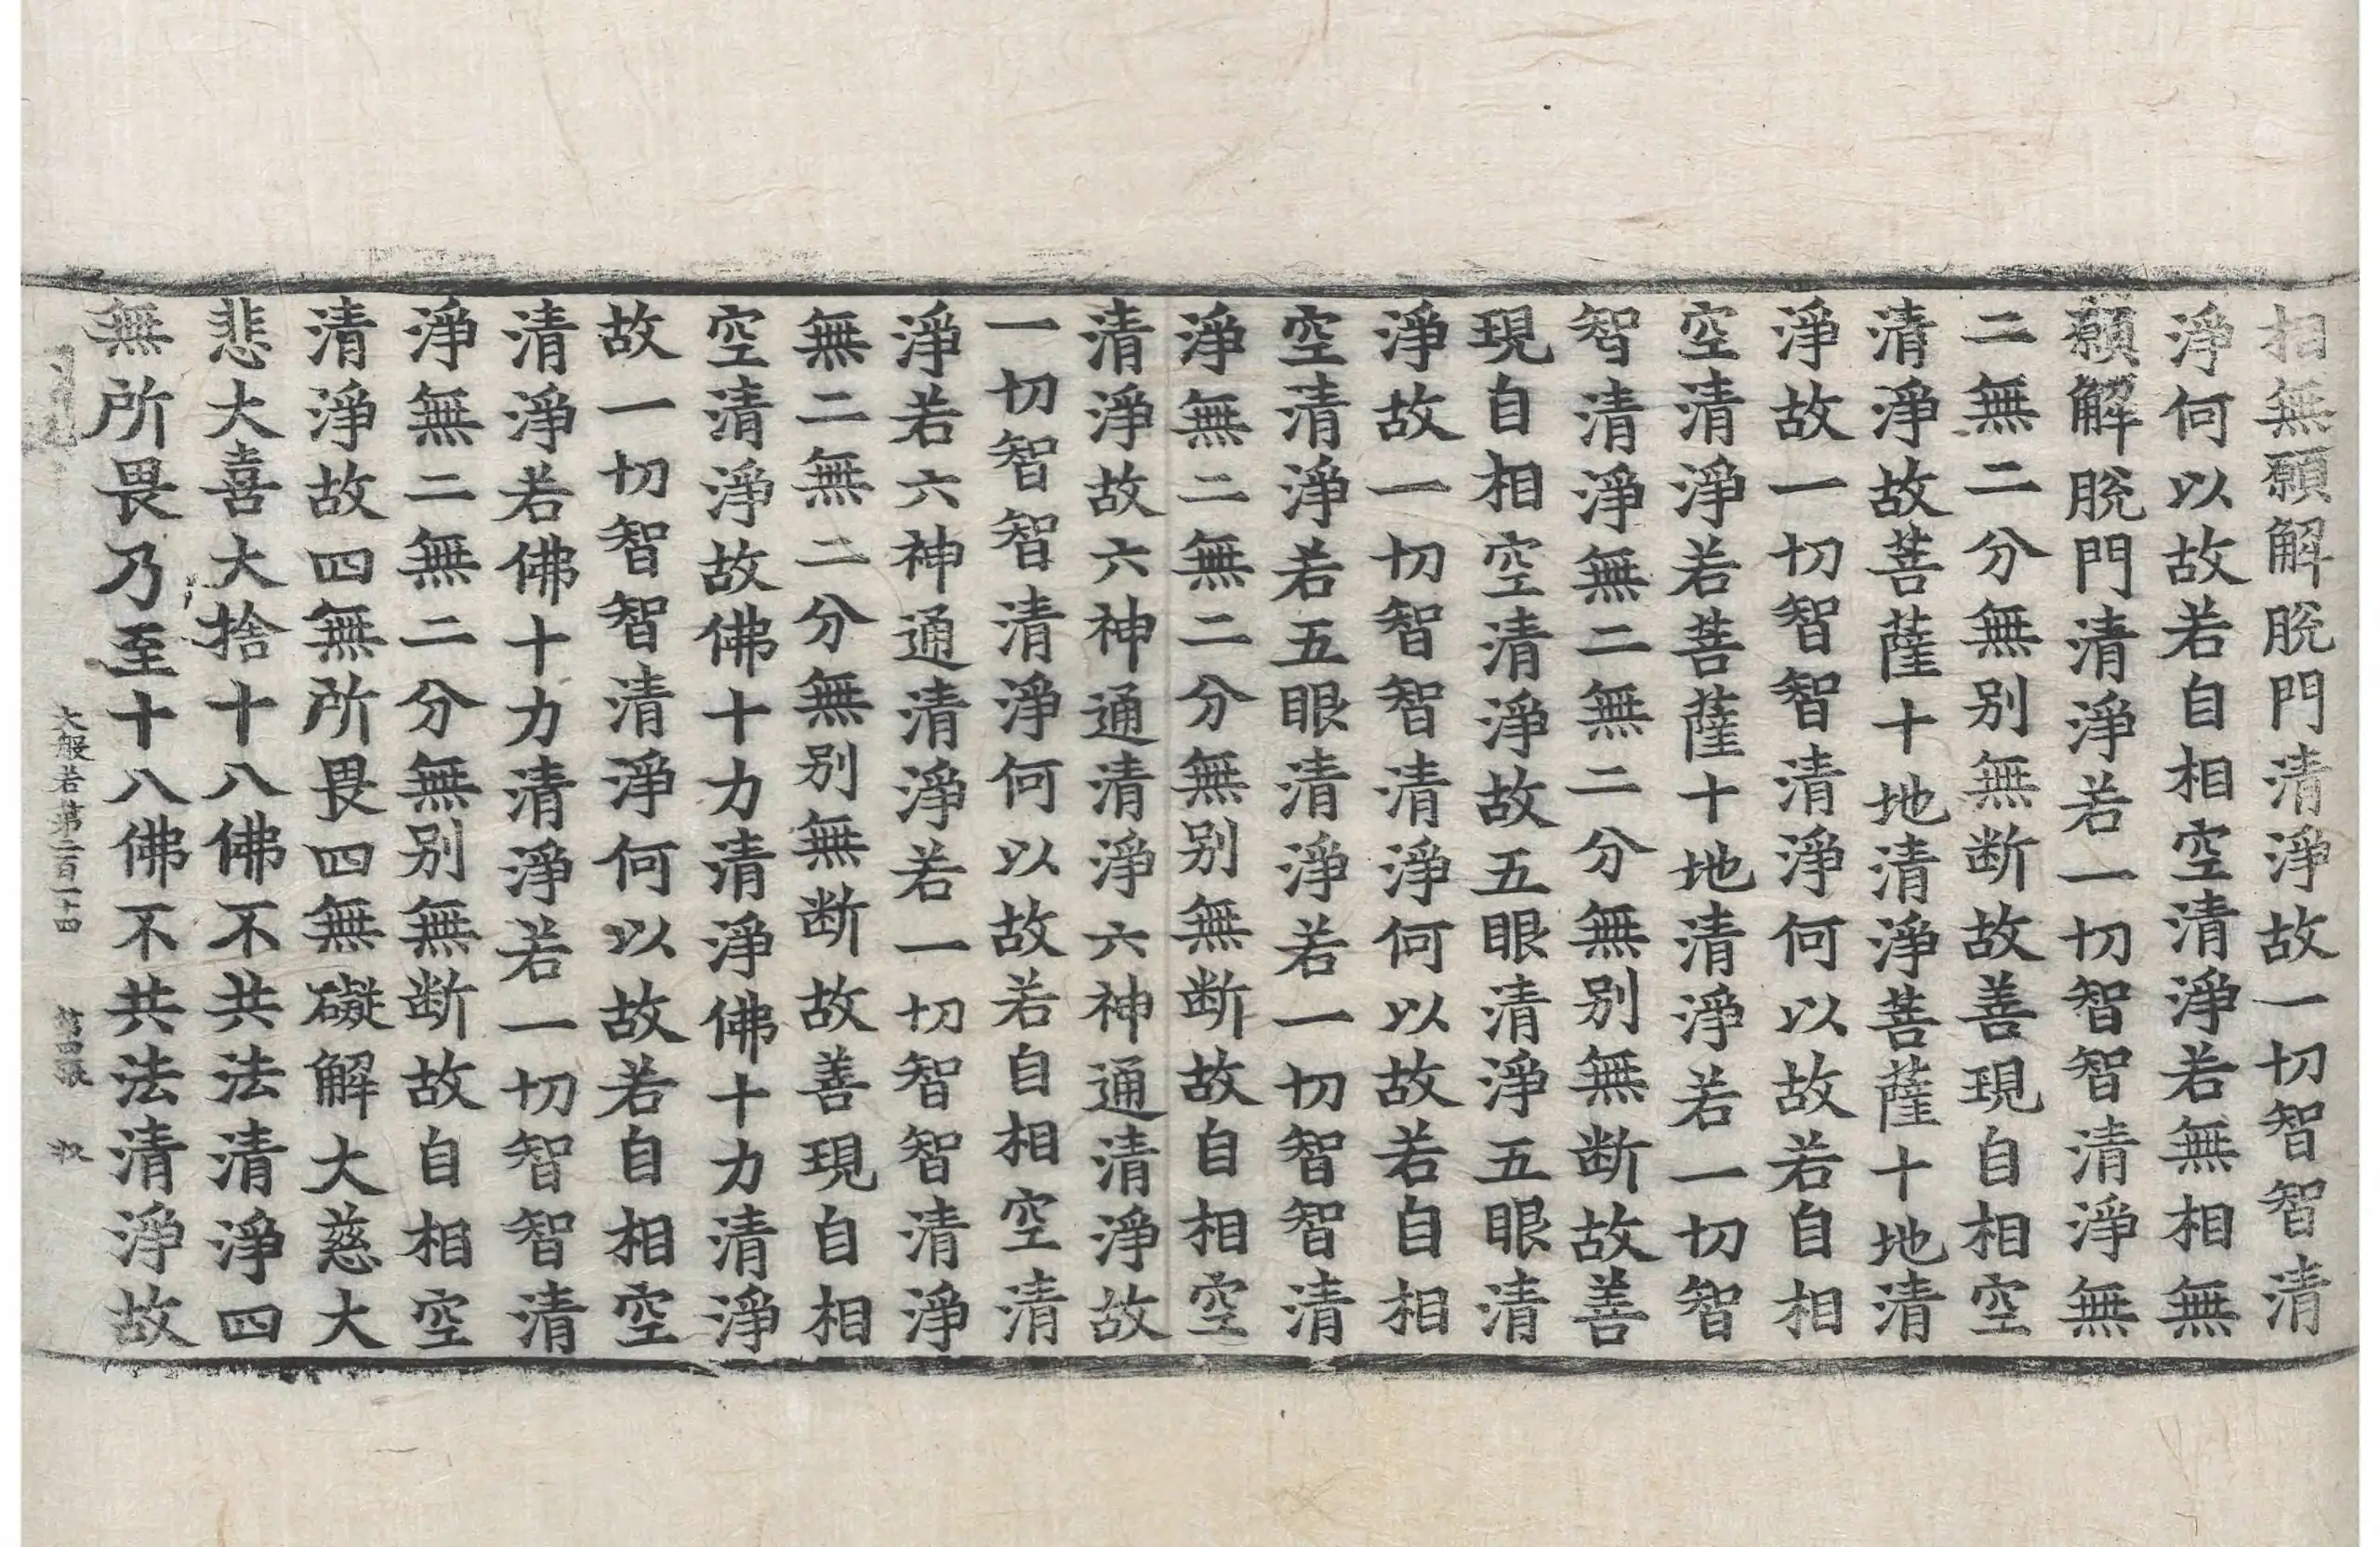 相無願解脫門清淨故一切智智清
淨何以故若自相空清淨若無相無
願解脫門清淨若一切智智清淨無
二無二分無別無断故善現自相空
清淨故菩薩十地清淨菩薩十地清
淨故一切智智清淨何以故若自相
空清淨若菩薩十地清淨若一切智
智清淨無二無二分無別無断故善
現自相空清淨故五眼清淨五眼清
淨故一切智智清淨何以故若自相
空清淨若五眼清淨若一切智智清
淨無二無二分無別無断故自相空
清淨故六神通清淨六神通清淨故
一切智智清淨何以故若自相空清
淨若六神通清淨若一切智智清淨
無二無二分無別無断故善現自相
空清淨故佛十力清淨佛十力清淨
故一切智智清淨何以故若自相空
清淨若佛十力清淨若一切智智清
淨無二無二分無別無断故自相空
清淨故四無所畏四無礙解大慈大
悲大喜大捨十八佛不共法清淨四
無所畏乃至十八佛不共法清淨故
大般若第二百二十四 第四張